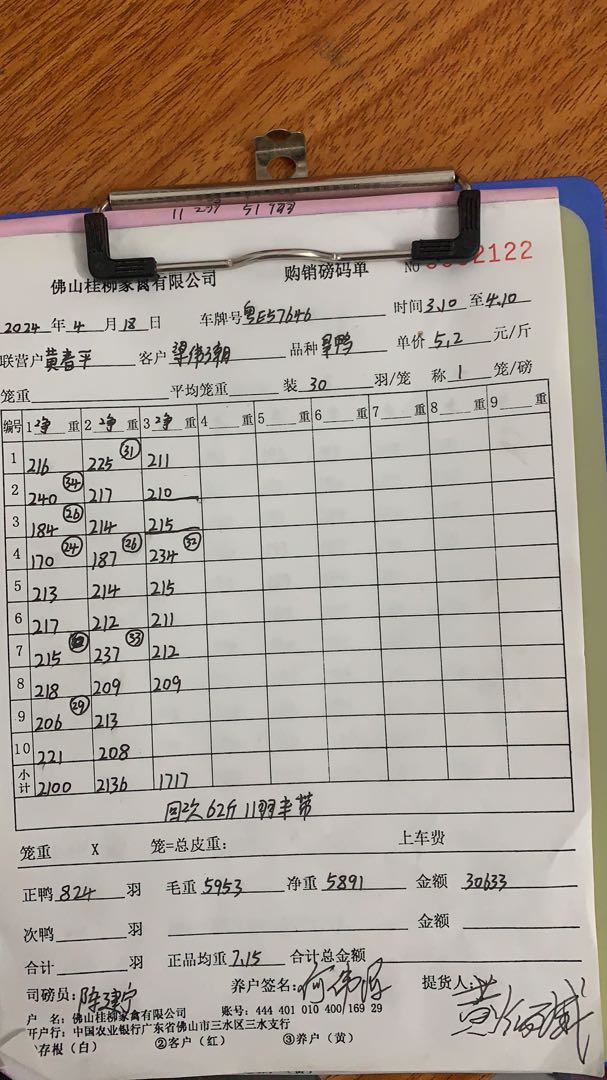 11 51
佛山桂柳家禽有限公司 购销磅码单 NO 2122
2024 年 4 月 18 日 车牌号 粤E57646 时间 3.10 至 4.10
联营户 黄春平 客户 梁伟 品种 鸭 单价 5.2 元/斤
笼重 平均笼重 装 30 羽/笼 称 1 笼/磅
编号 1 净 重 2 净 重 3 净 重 4 重 5 重 6 重 7 重 8 重 9 重
1 216 225 ㉛ 211
2 240 ㉞ 217 210
3 184 ㉖ 214 215
4 170 ㉔ 187 ㉖ 234 ㉜
5 213 214 215
6 217 212 211
7 215 237 ㉝ 212
8 218 209 209
9 206 ㉙ 213
10 221 208
小计 2100 2136 1717
回次62斤11羽
笼重 X 笼=总皮重: 上车费
正鸭 824 羽 毛重 5953 净重 5891 金额 30633
次鸭 羽 金额
合计 羽 正品均重 7.15 合计总金额
司磅员: 陈建宁 养户签名: 何伟 提货人: 黄
户 名: 佛山桂柳家禽有限公司 账号: 444 401 010 400 169 29
开户行: 中国农业银行广东省佛山市三水区三水支行
存根(白) ②客户(红) ③养户(黄)